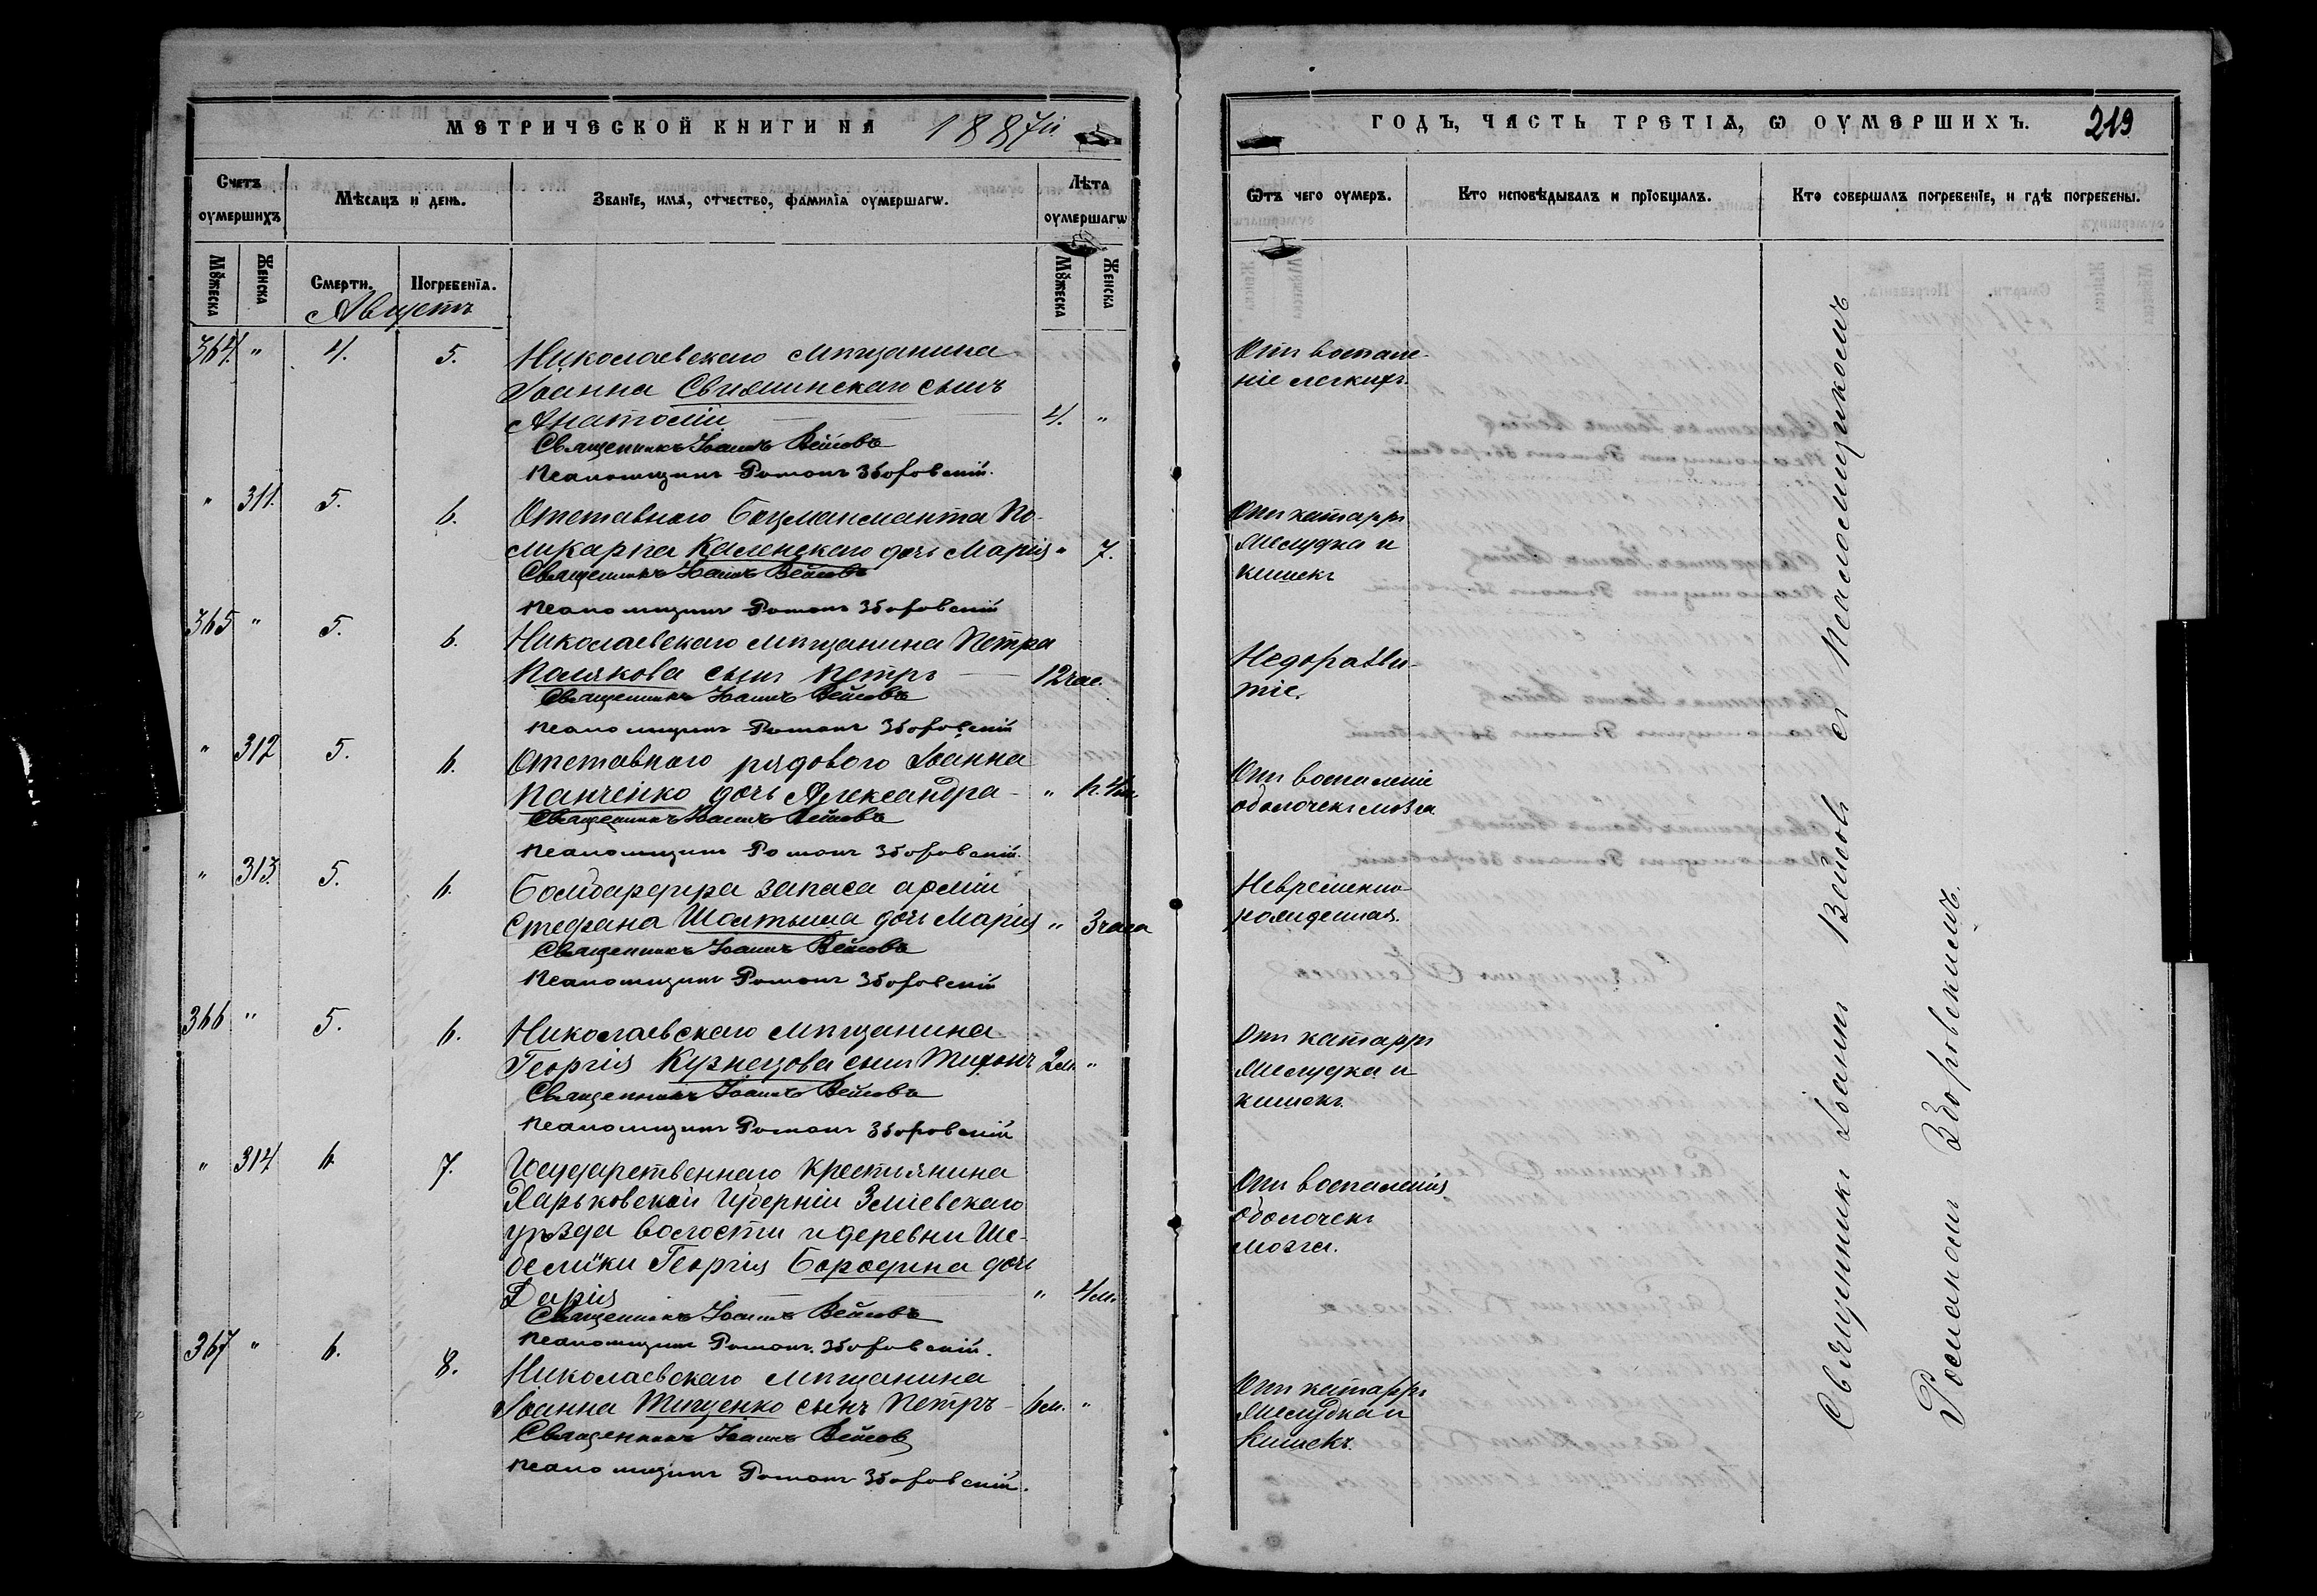 МЕТРИЧЕСКОЙ КНИГИ НА 1887й
ГОДЪ, ЧАСТЬ ТРЕТІЯ, Ѡ ОУМЕРШИХЪ. 219
Счетъ оумершихъ
Мѣсяцъ и день.
Званіе, имя, отчество, фамилія оумершагѡ.
Лѣта оумершагѡ
Ѿтъ чего оумеръ.
Кто исповѣдывалъ и пріобщалъ.
Кто совершалъ погребеніе, и гдѣ погребены.
Мꙋжеска Женска Смерти. Погребенія. Мꙋжеска Женска
Августъ
364. " 4. 5. Николаевскаго мѣщанина
Іоанна Свидминскаго сынъ
Анатолій 4. "
Отъ воспале-
ніе легкихъ.
Священникъ Іоаннъ Вейсовъ
Псаломщикъ Романъ Зборовскій.
" 311. 5. 6. Отставнаго Боцманманта По-
ликарпа Каленскаго дочь Марія " 7.
Отъ катарръ
желудка и
кишекъ
Священникъ Іоаннъ Вейсовъ
Псаломщикъ Романъ Зборовскій
365 " 5. 6. Николаевскаго мѣщанина Петра
Полякова сынъ Петръ 12 час.
Недоразви-
тіе.
Священникъ Іоаннъ Вейсовъ
Псаломщикъ Романъ Зборовскій
" 312 5. 6. Отставнаго рядового Іоанна
Панченко дочь Александра "
Отъ воспаленіе
оболочекъ мозга.
Священникъ Іоаннъ Вейсовъ
Псаломщикъ Романъ Зборовскій.
" 313. 5. 6. Бомбардира запаса арміи
Стефана Шолтыша дочь Марія " 3 часа
Невременно
рожденная.
Священникъ Іоаннъ Вейсовъ
Псаломщикъ Романъ Зборовскій
366 " 5. 6. Николаевскаго мѣщанина
Георгія Кузнецова сынъ Тихонъ 2 м. "
Отъ катарръ
желудка и
кишекъ.
Священникъ Іоаннъ Вейсовъ
Псаломщикъ Романъ Зборовскій
" 314 6. 7. Государственнаго крестьянина
Харьковской губерніи Зміевскаго
уѣзда волости и деревни Ше-
белинки Георгія Бородина дочь
Дарія " 4 м.
Отъ воспаленія
оболочекъ
мозга.
Священникъ Іоаннъ Вейсовъ
Псаломщикъ Романъ Зборовскій.
367 " 6. 8. Николаевскаго мѣщанина
Іоанна Тищенко сынъ Петръ 6 м. "
Отъ катарръ
желудка и
кишекъ.
Священникъ Іоаннъ Вейсовъ
Псаломщикъ Романъ Зборовскій.
Священникъ Іоаннъ Вейсовъ съ Псаломщикомъ
Романомъ Зборовскимъ.